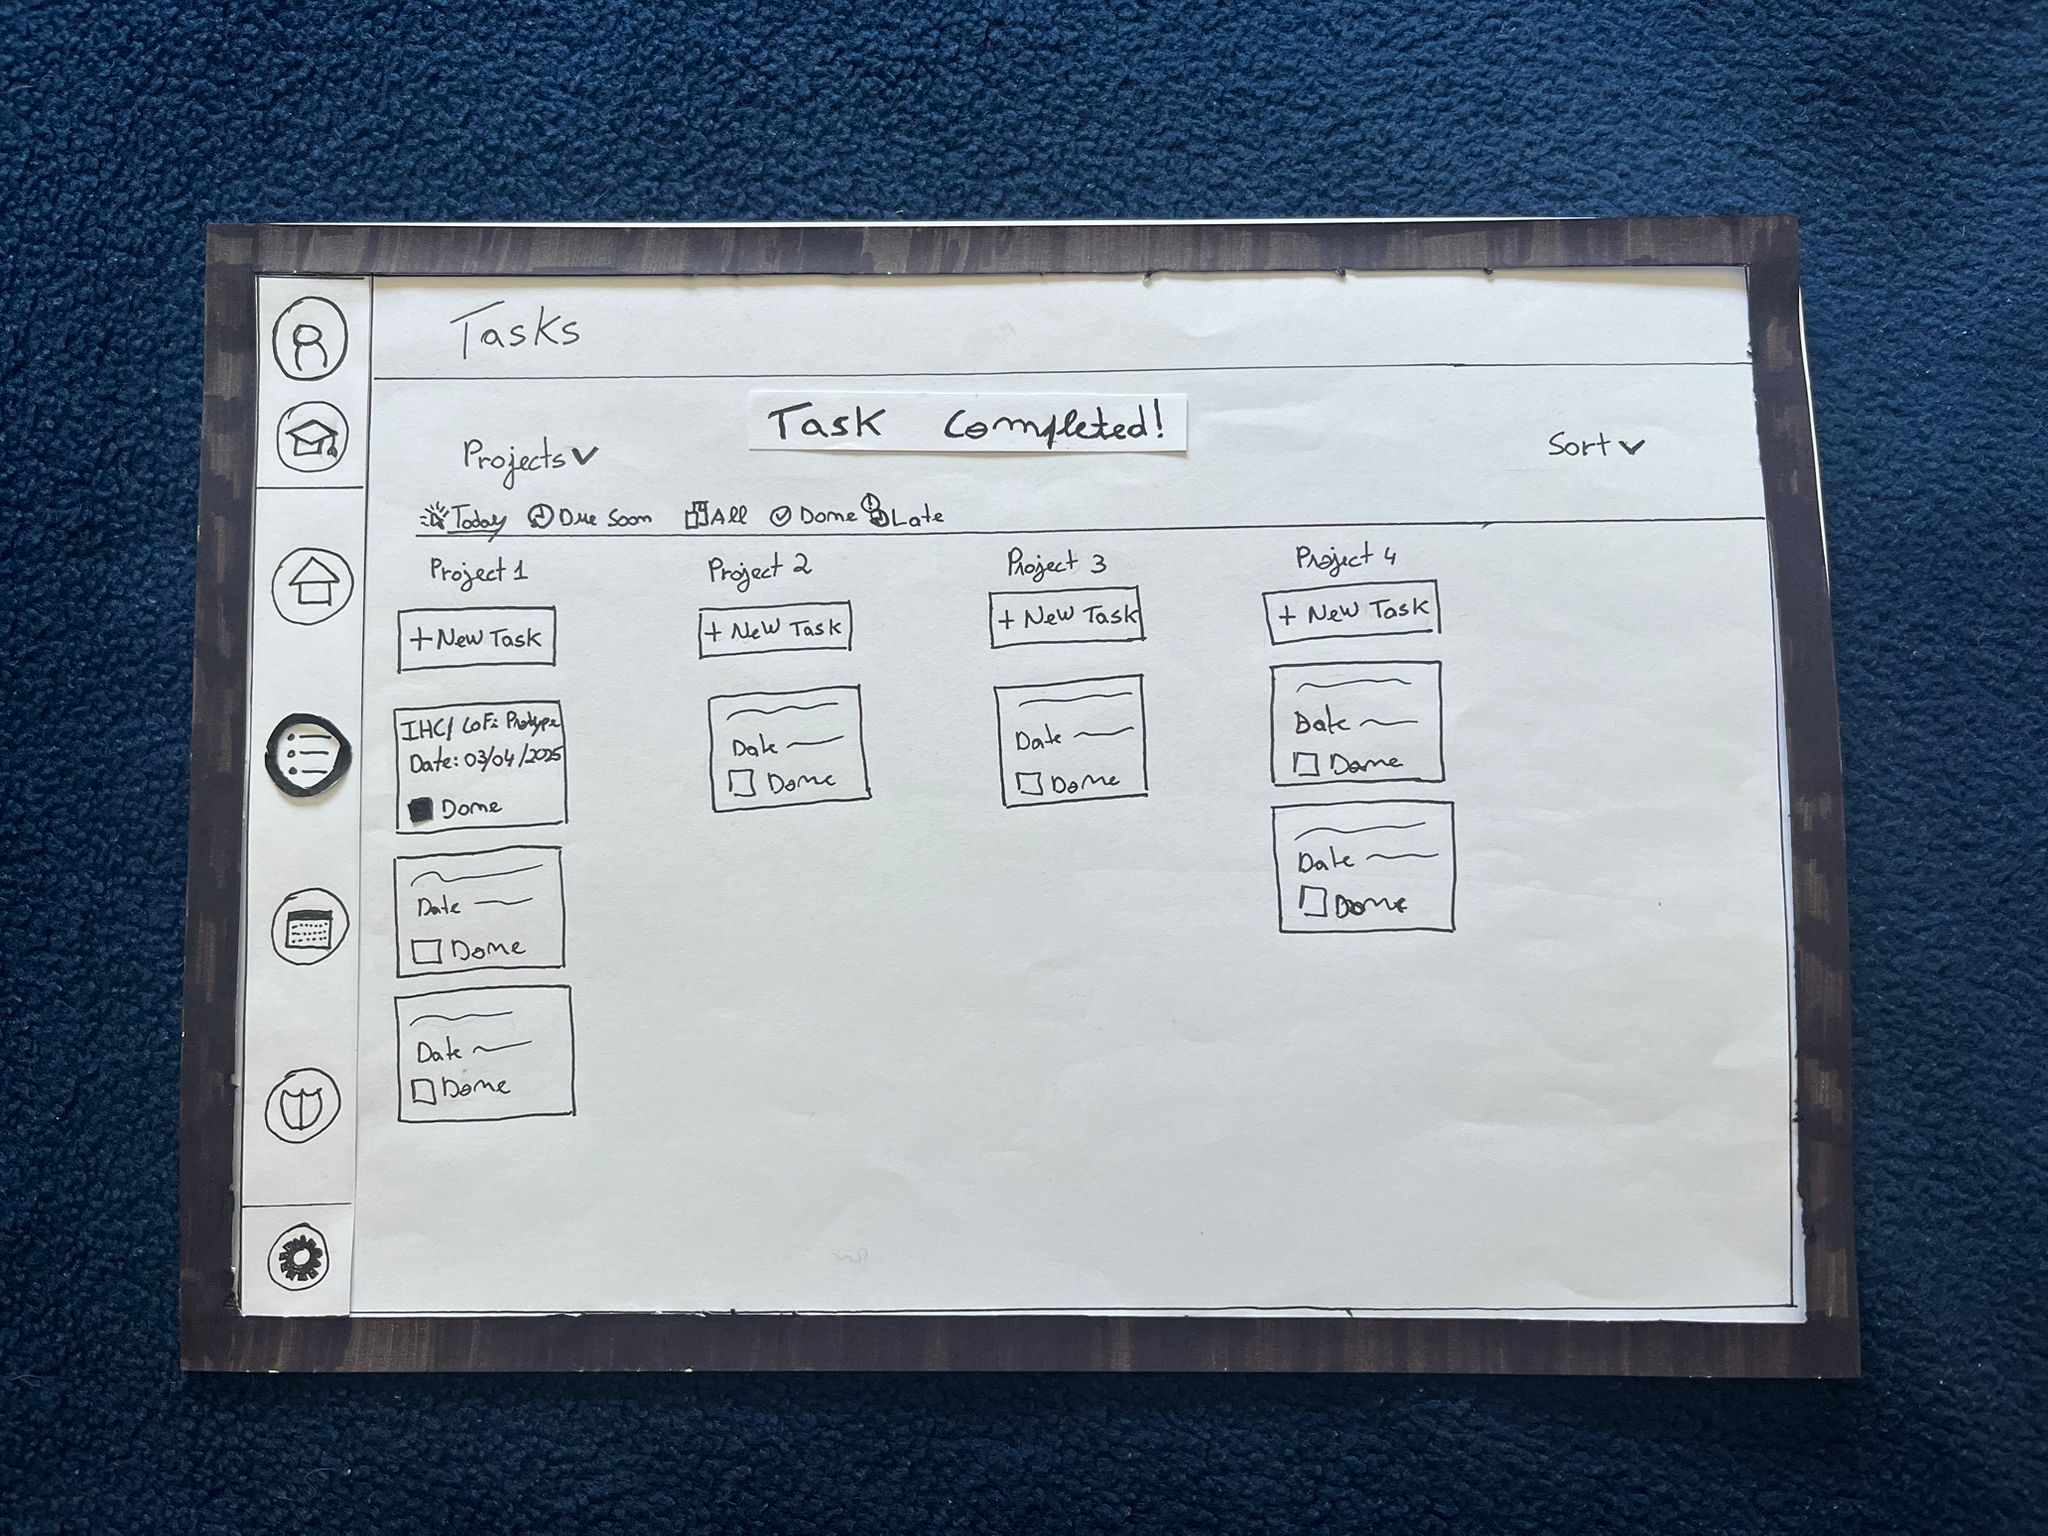 Tasks
Task Completed!
Projects
Sort
Today Due Soon All Done Late
Project 1
+ New Task
IHC/ LoFi Protype
Date: 03/04/2025
Done
Date
Done
Date
Done
Project 2
+ New Task
Date
Done
Project 3
+ New Task
Date
Done
Project 4
+ New Task
Date
Done
Date
Done